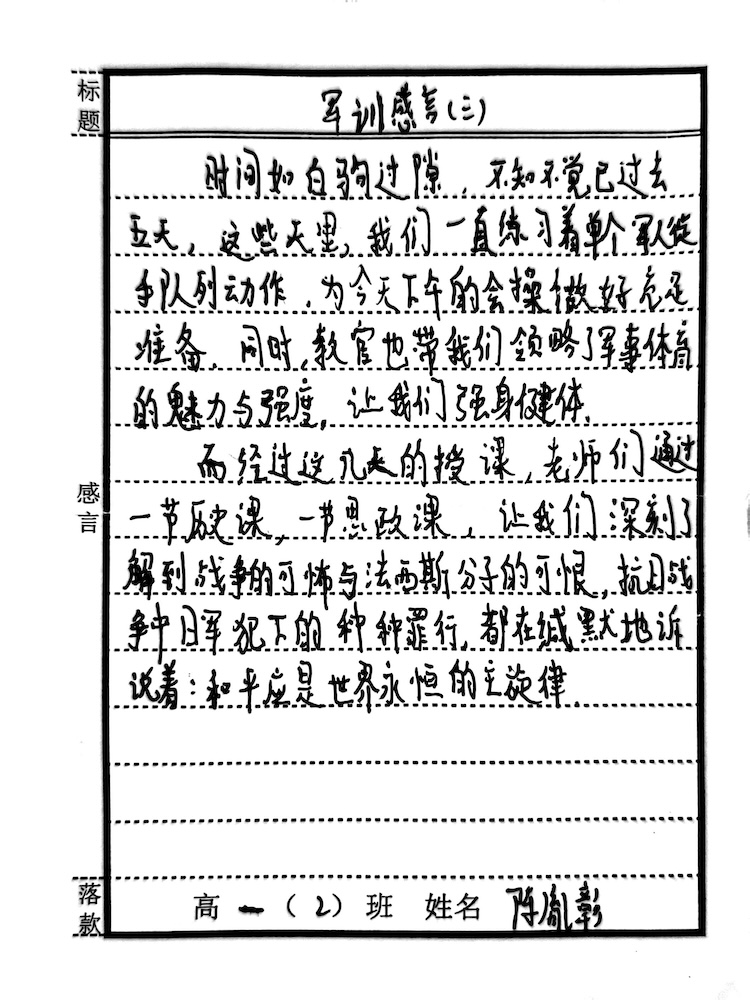 标题
军训感言(三)
时间如白驹过隙，不知不觉已过去
五天，这些天里，我们一直练习着单个军人徒
手队列动作，为今天下午的会操做好充足
准备。同时，教官也带我们领略了军事体育
的魅力与强度，让我们强身健体。
而经过这几天的授课，老师们通过
一节历史课，一节思政课，让我们深刻了
解到战争的可怖与法西斯分子的可恨，抗日战
争中日军犯下的种种罪行，都在缄默地诉
说着：和平应是世界永恒的主旋律。
感言
落款
高一（2）班 姓名 陈胤彰